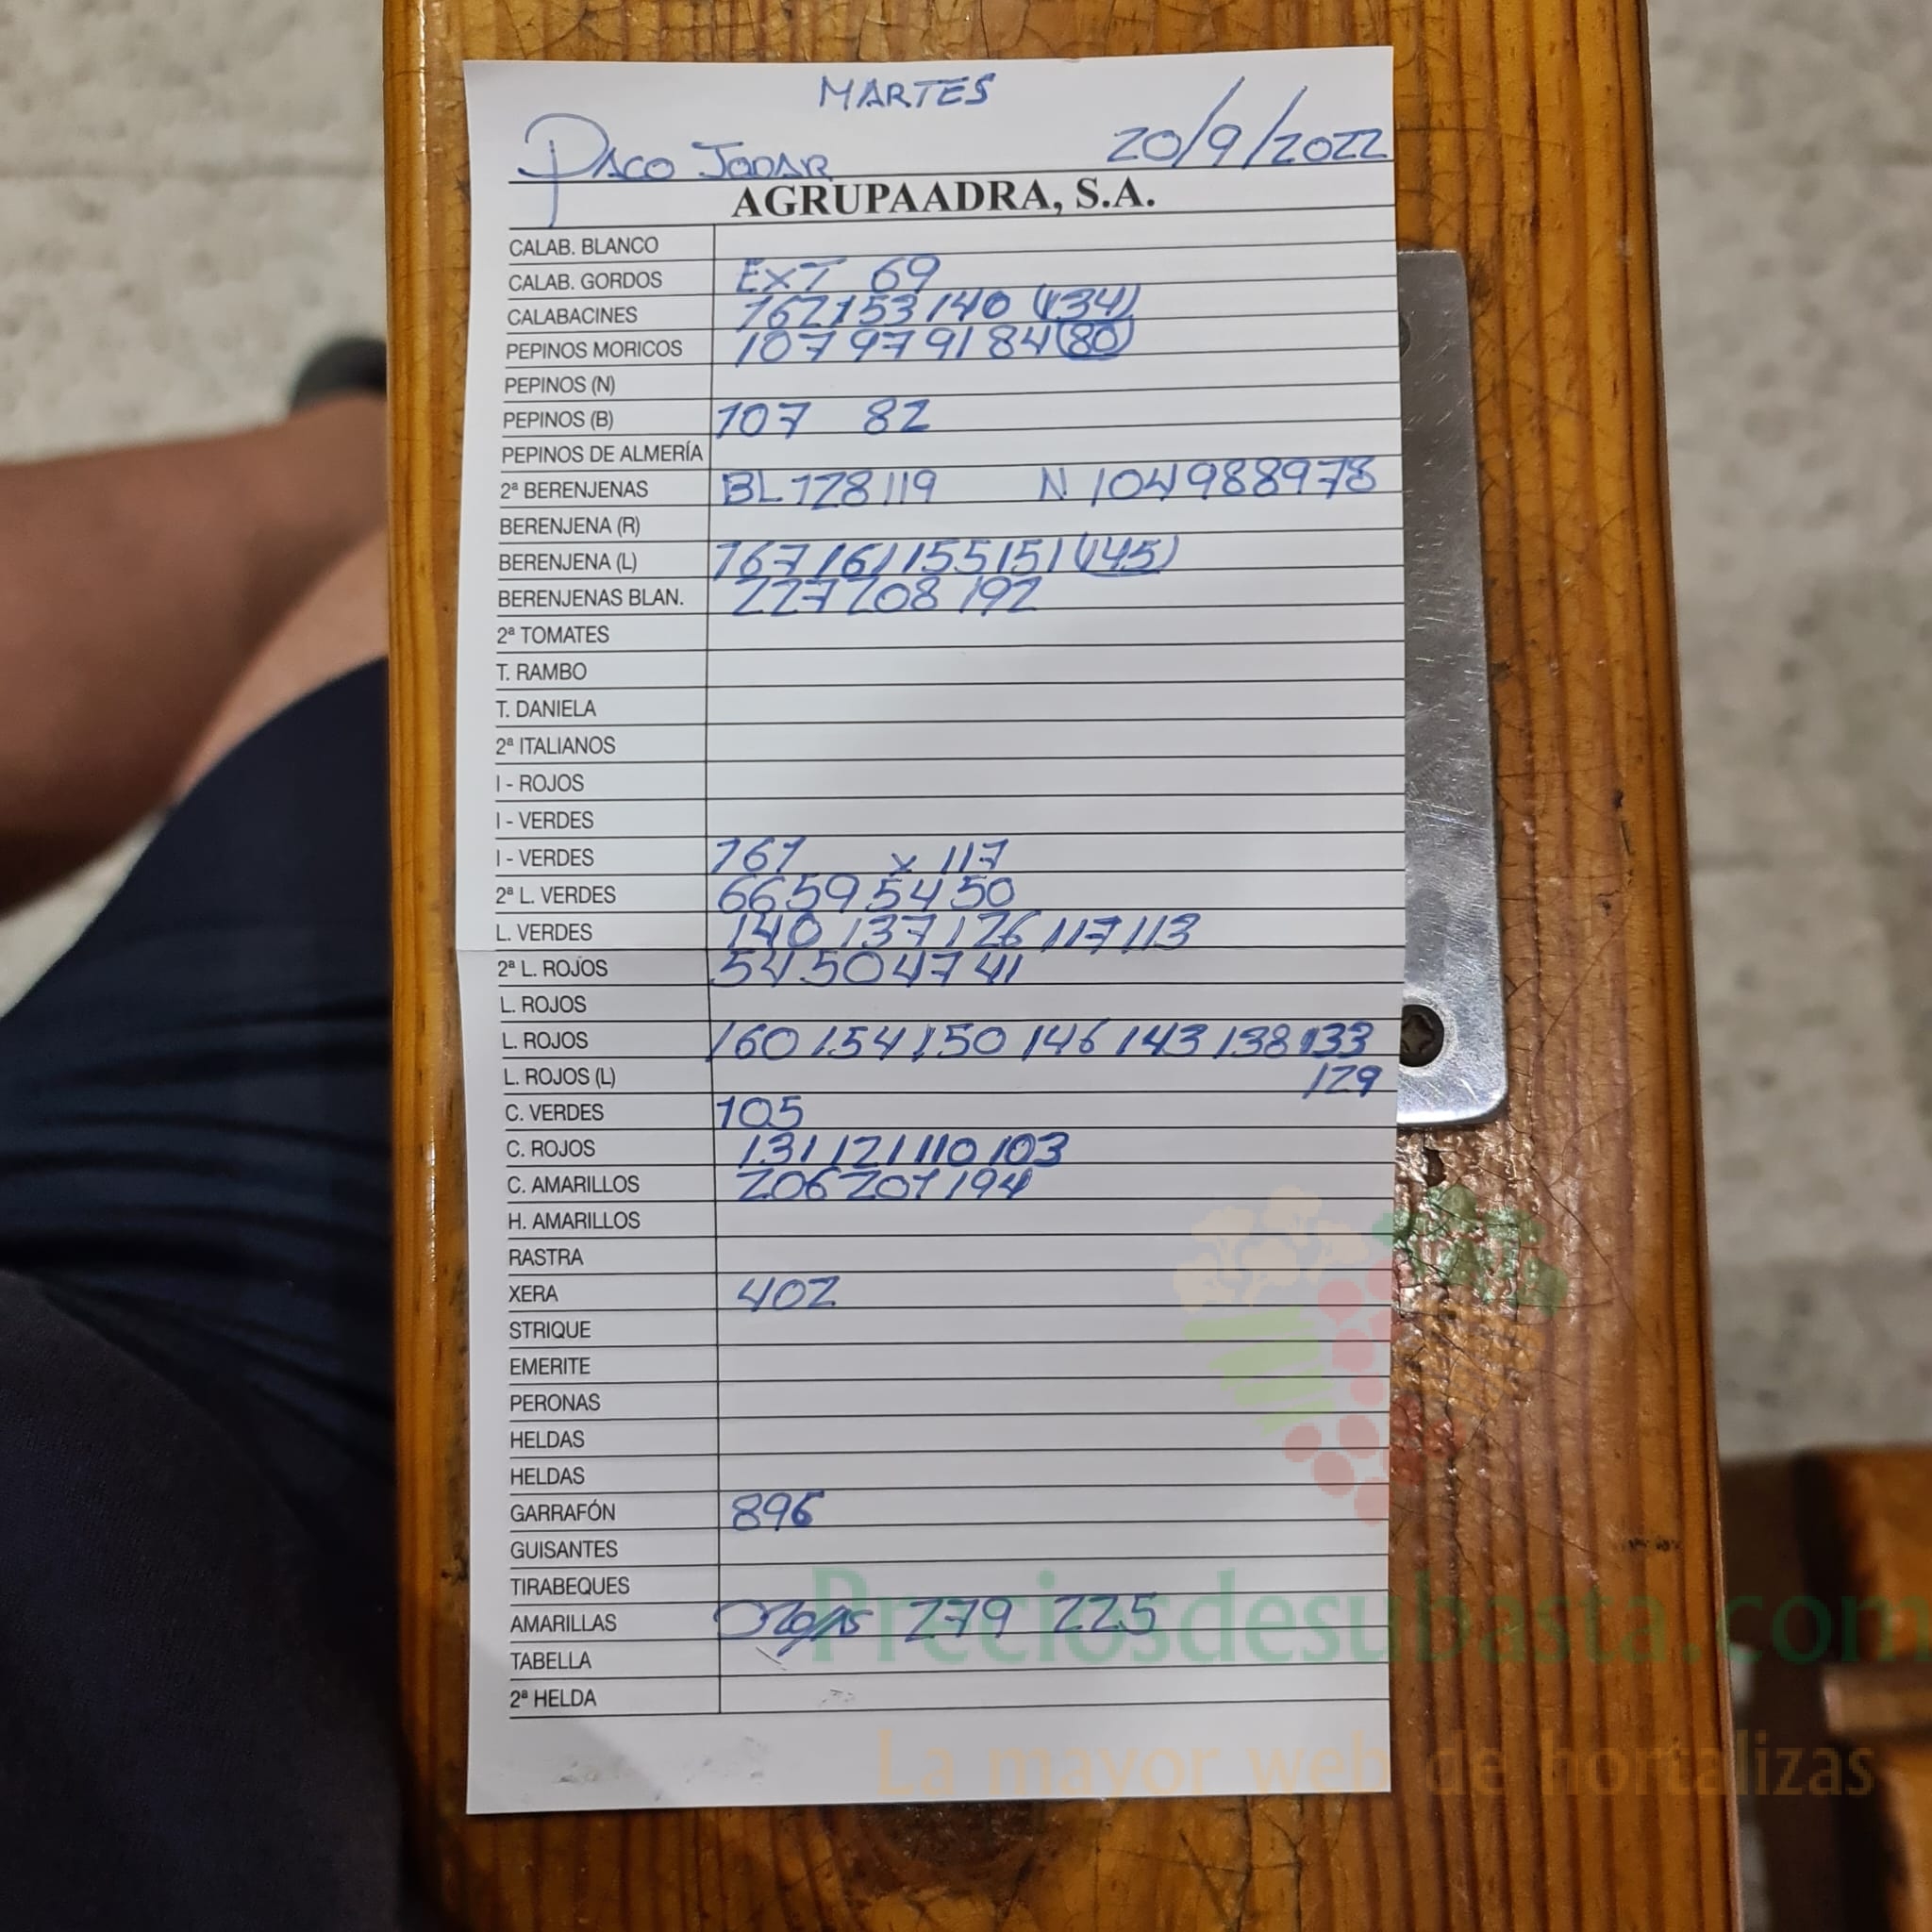 MARTES
PACO JODAR 20/9/2022
AGRUPAADRA, S.A.
CALAB. BLANCO
CALAB. GORDOS EXT 69
CALABACINES 162 153 140 (134)
PEPINOS MORICOS 107 97 91 84 (80)
PEPINOS (N)
PEPINOS (B) 107 82
PEPINOS DE ALMERÍA
2ª BERENJENAS BL 128 119 N 104 98 89 78
BERENJENA (R)
BERENJENA (L) 167 161 155 151 (145)
BERENJENAS BLAN. 227 208 192
2ª TOMATES
T. RAMBO
T. DANIELA
2ª ITALIANOS
I - ROJOS
I - VERDES
I - VERDES 161 x 117
2ª L. VERDES 66 59 54 50
L. VERDES 140 137 126 117 113
2ª L. ROJOS 54 50 47 41
L. ROJOS
L. ROJOS 160 154 150 146 143 138 133
L. ROJOS (L) 129
C. VERDES 105
C. ROJOS 131 121 110 103
C. AMARILLOS 206 201 194
H. AMARILLOS
RASTRA
XERA 402
STRIQUE
EMERITE
PERONAS
HELDAS
HELDAS
GARRAFÓN 896
GUISANTES
TIRABEQUES
AMARILLAS 279 225
TABELLA
2ª HELDA
Preciosdesubasta.com
La mayor web de hortalizas